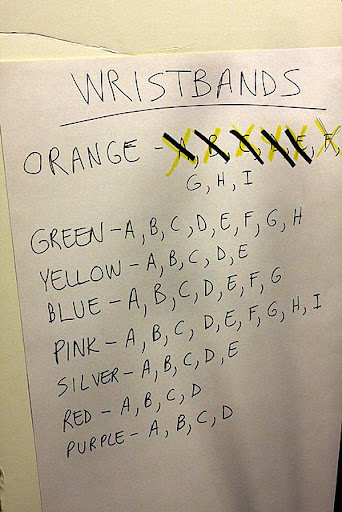 WRISTBANDS
ORANGE - A, B, C, D, E, F,
G, H, I
GREEN - A, B, C, D, E, F, G, H
YELLOW - A, B, C, D, E
BLUE - A, B, C, D, E, F, G
PINK - A, B, C, D, E, F, G, H, I
SILVER - A, B, C, D, E
RED - A, B, C, D
PURPLE - A, B, C, D